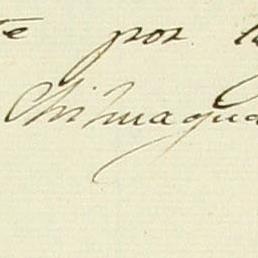 te por
Chimaqua